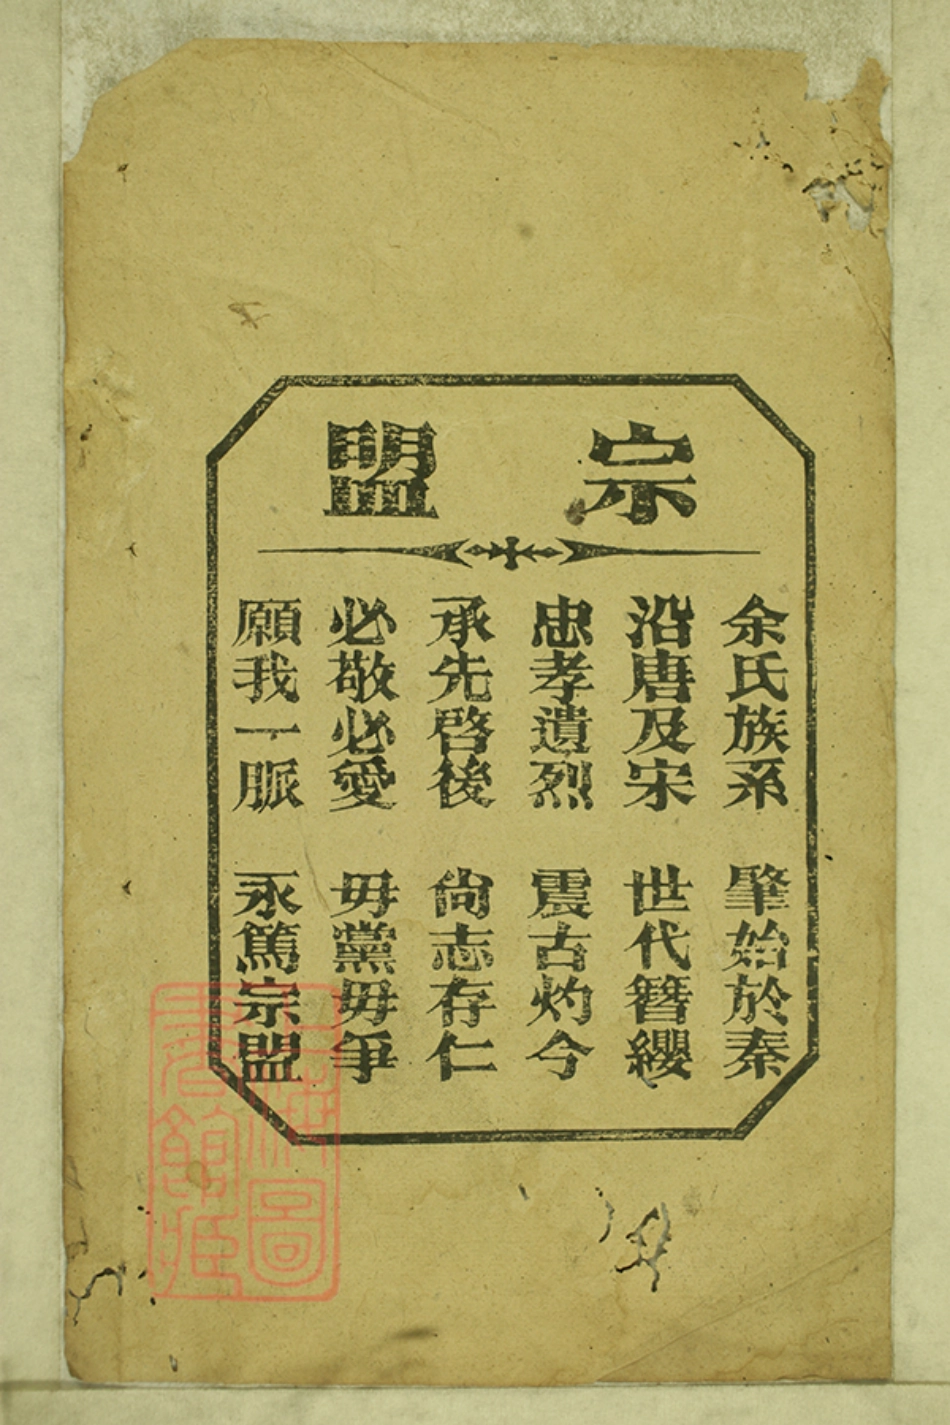 宗盟
余氏族系 肇始於秦
沿唐及宋 世代簪纓
忠孝遺烈 震古灼今
承先啓後 尙志存仁
必敬必愛 毋黨毋爭
願我一脈 永篤宗盟
上海圖書館藏